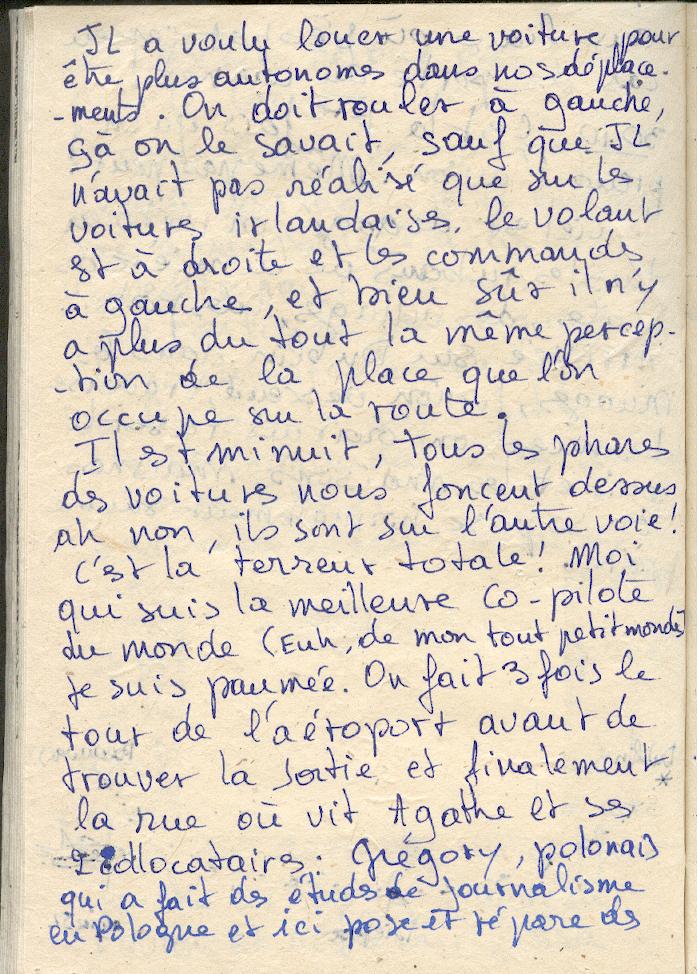 JL a voulu louer une voiture pour
être plus autonomes dans nos déplace-
-ments. On doit rouler à gauche,
çà on le savait, sauf que JL
n'avait pas réalisé que sur les
voitures irlandaises, le volant
est à droite et les commandes
à gauche, et bien sûr il n'y
a plus du tout la même percep-
-tion de la place que l'on
occupe sur la route.
Il est minuit, tous les phares
des voitures nous foncent dessus
ah non, ils sont sur l'autre voie!
C'est la terreur totale! Moi
qui suis la meilleure co-pilote
du monde (Euh, de mon tout petit monde)
je suis paumée. On fait 3 fois le
tour de l'aéroport avant de
trouver la sortie et finalement
la rue où vit Agathe et ses
colocataires. Grégory, polonais
qui a fait des études de journalisme
en Pologne et ici pose et répare des